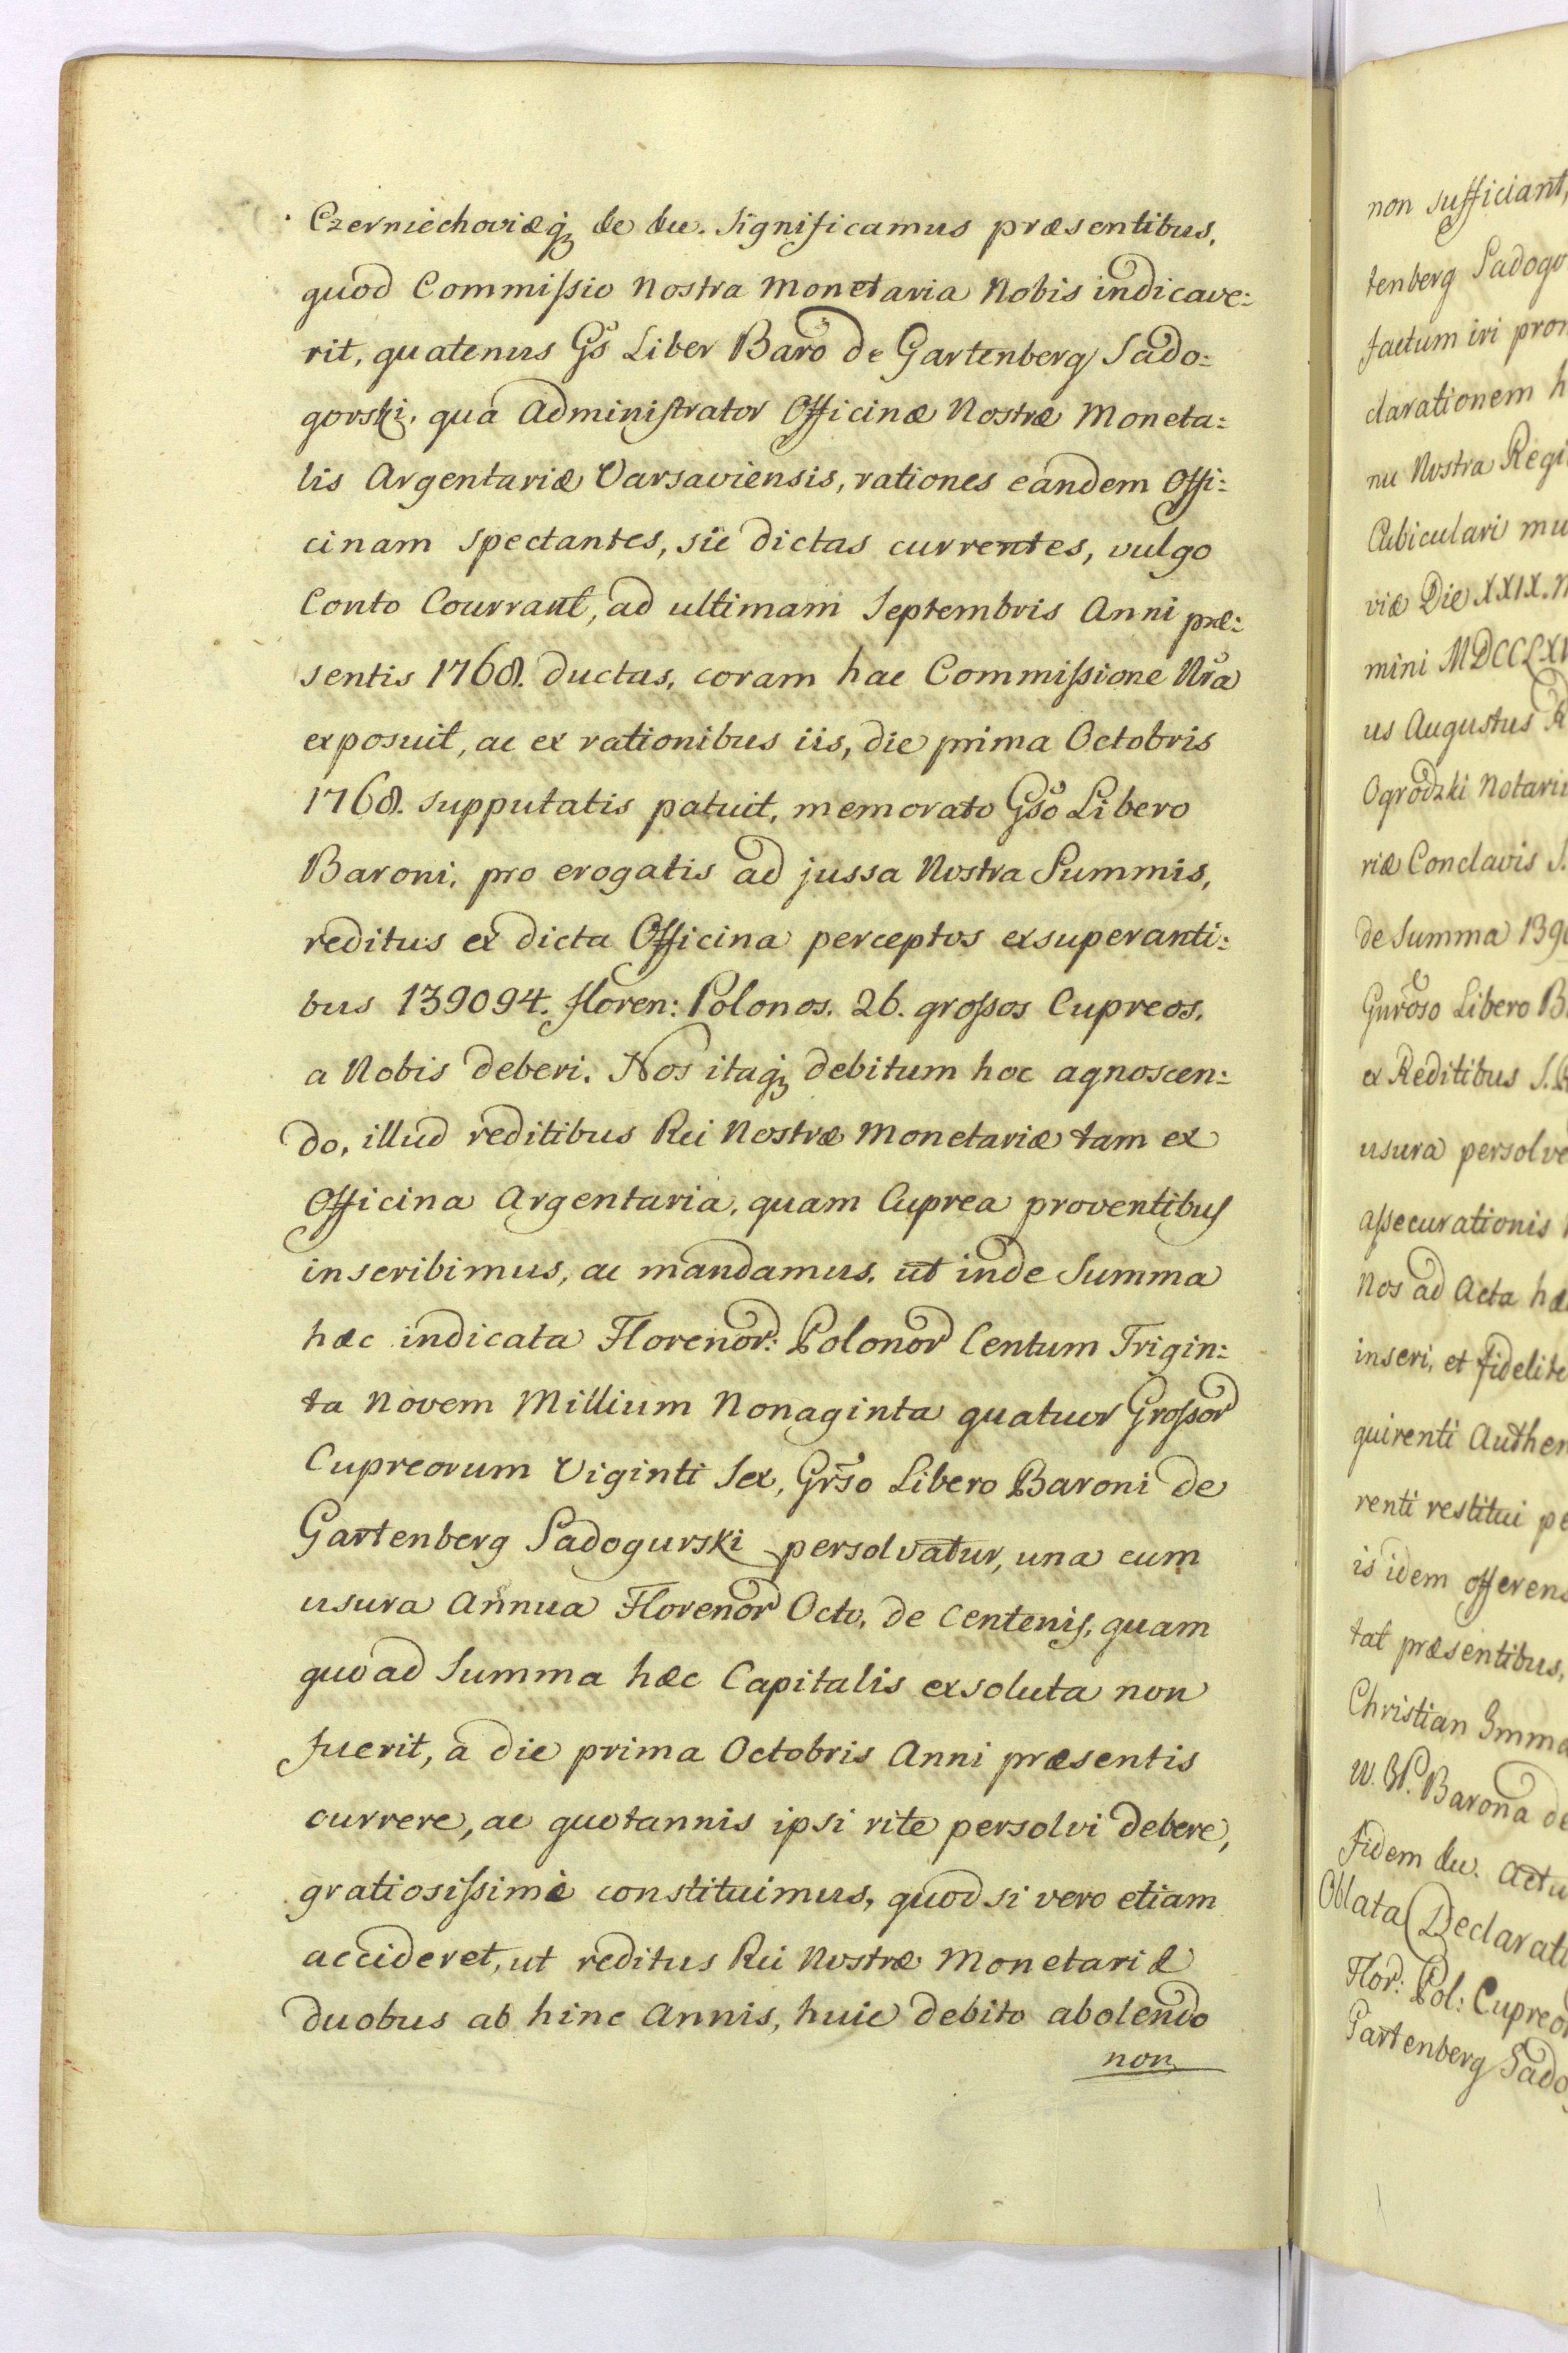 Czerniechoviæq; &c &c. Significamus præsentibus,
quod Commissio Nostra Monetaria Nobis indicave:
rit, quatenus Gs Liber Baro de Gartenberg Sado:
gorski, qua Administrator Officinæ Nostræ Moneta:
lis Argentariæ Varsaviensis, rationes eandem Offi:
cinam spectantes, sic dictas currentes, vulgo
Conto Courrant, ad ultimam Septembris Anni præ:
sentis 1768. ductas, coram hac Commissione Nra
exposuit, ac ex rationibus iis, die prima Octobris
1768. supputatis patuit, memorato Gso Libero
Baroni, pro erogatis ad jussa Nostra Summis,
reditus ex dicta Officina perceptos exsuperanti:
bus 139094. floren: Polonos. 26. grossos Cupreos,
a Nobis deberi. Nos itaq; debitum hoc agnoscen:
do, illud reditibus Rei Nostræ Monetariæ tam ex
Officina Argentaria, quam Cuprea proventibus
inscribimus, ac mandamus, ut inde Summa
hæc indicata Florenor: Polonor Centum Trigin:
ta Novem Millium Nonaginta quatuor Grossor
Cupreorum Viginti Sex, Grso Libero Baroni de
Gartenberg Sadogurski persolvatur, una cum
usura Annua Florenor Octo, de Centenis, quam
quoad Summa hæc Capitalis exsoluta non
fuerit, a die prima Octobris Anni præsentis
currere, ac quotannis ipsi rite persolvi debere,
gratiosissime constituimus, quod si vero etiam
accideret, ut reditus Rei Nostræ Monetariæ
duobus ab hinc Annis, huic debito abolendo
non
non sufficiant,
tenberg Sadogo
factum iri pro
clarationem h
nu Nostra Regi
Cubiculari mu
viæ Die XXIX.
mini MDCCLX
us Augustus R
Ogrodzki Notari
riæ Conclavis S.
de Summa 139
Gnroso Libero B
ex Reditibus S.
usura persolve
assecurationis
Nos ad Acta hæ
inseri, et fidelite
quirenti Authen
renti restitui pe
is idem offerens
tat præsentibus,
Christian Imma
W. JP. Barona de
fidem &c. Actu
Oblata Declarati
Flor: Pol: Cupreor
Gartenberg Sado